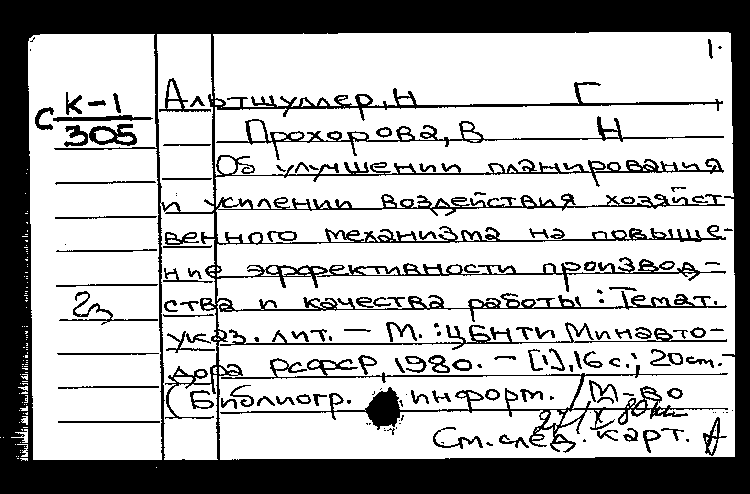 1.
С К-1
305
Альтшуллер, Н Г
Прохорова, В Н
Об улучшении планирования
и усилении воздействия хозяйст-
венного механизма на повыше-
ние эффективности производ-
2з
ства и качества работы : Темат.
указ. лит. — М. : ЦБНТИ Минавто-
дора РСФСР, 1980. — [1], 16 с.; 20 см. —
(Библиогр. информ. / М-во
См. след. карт.